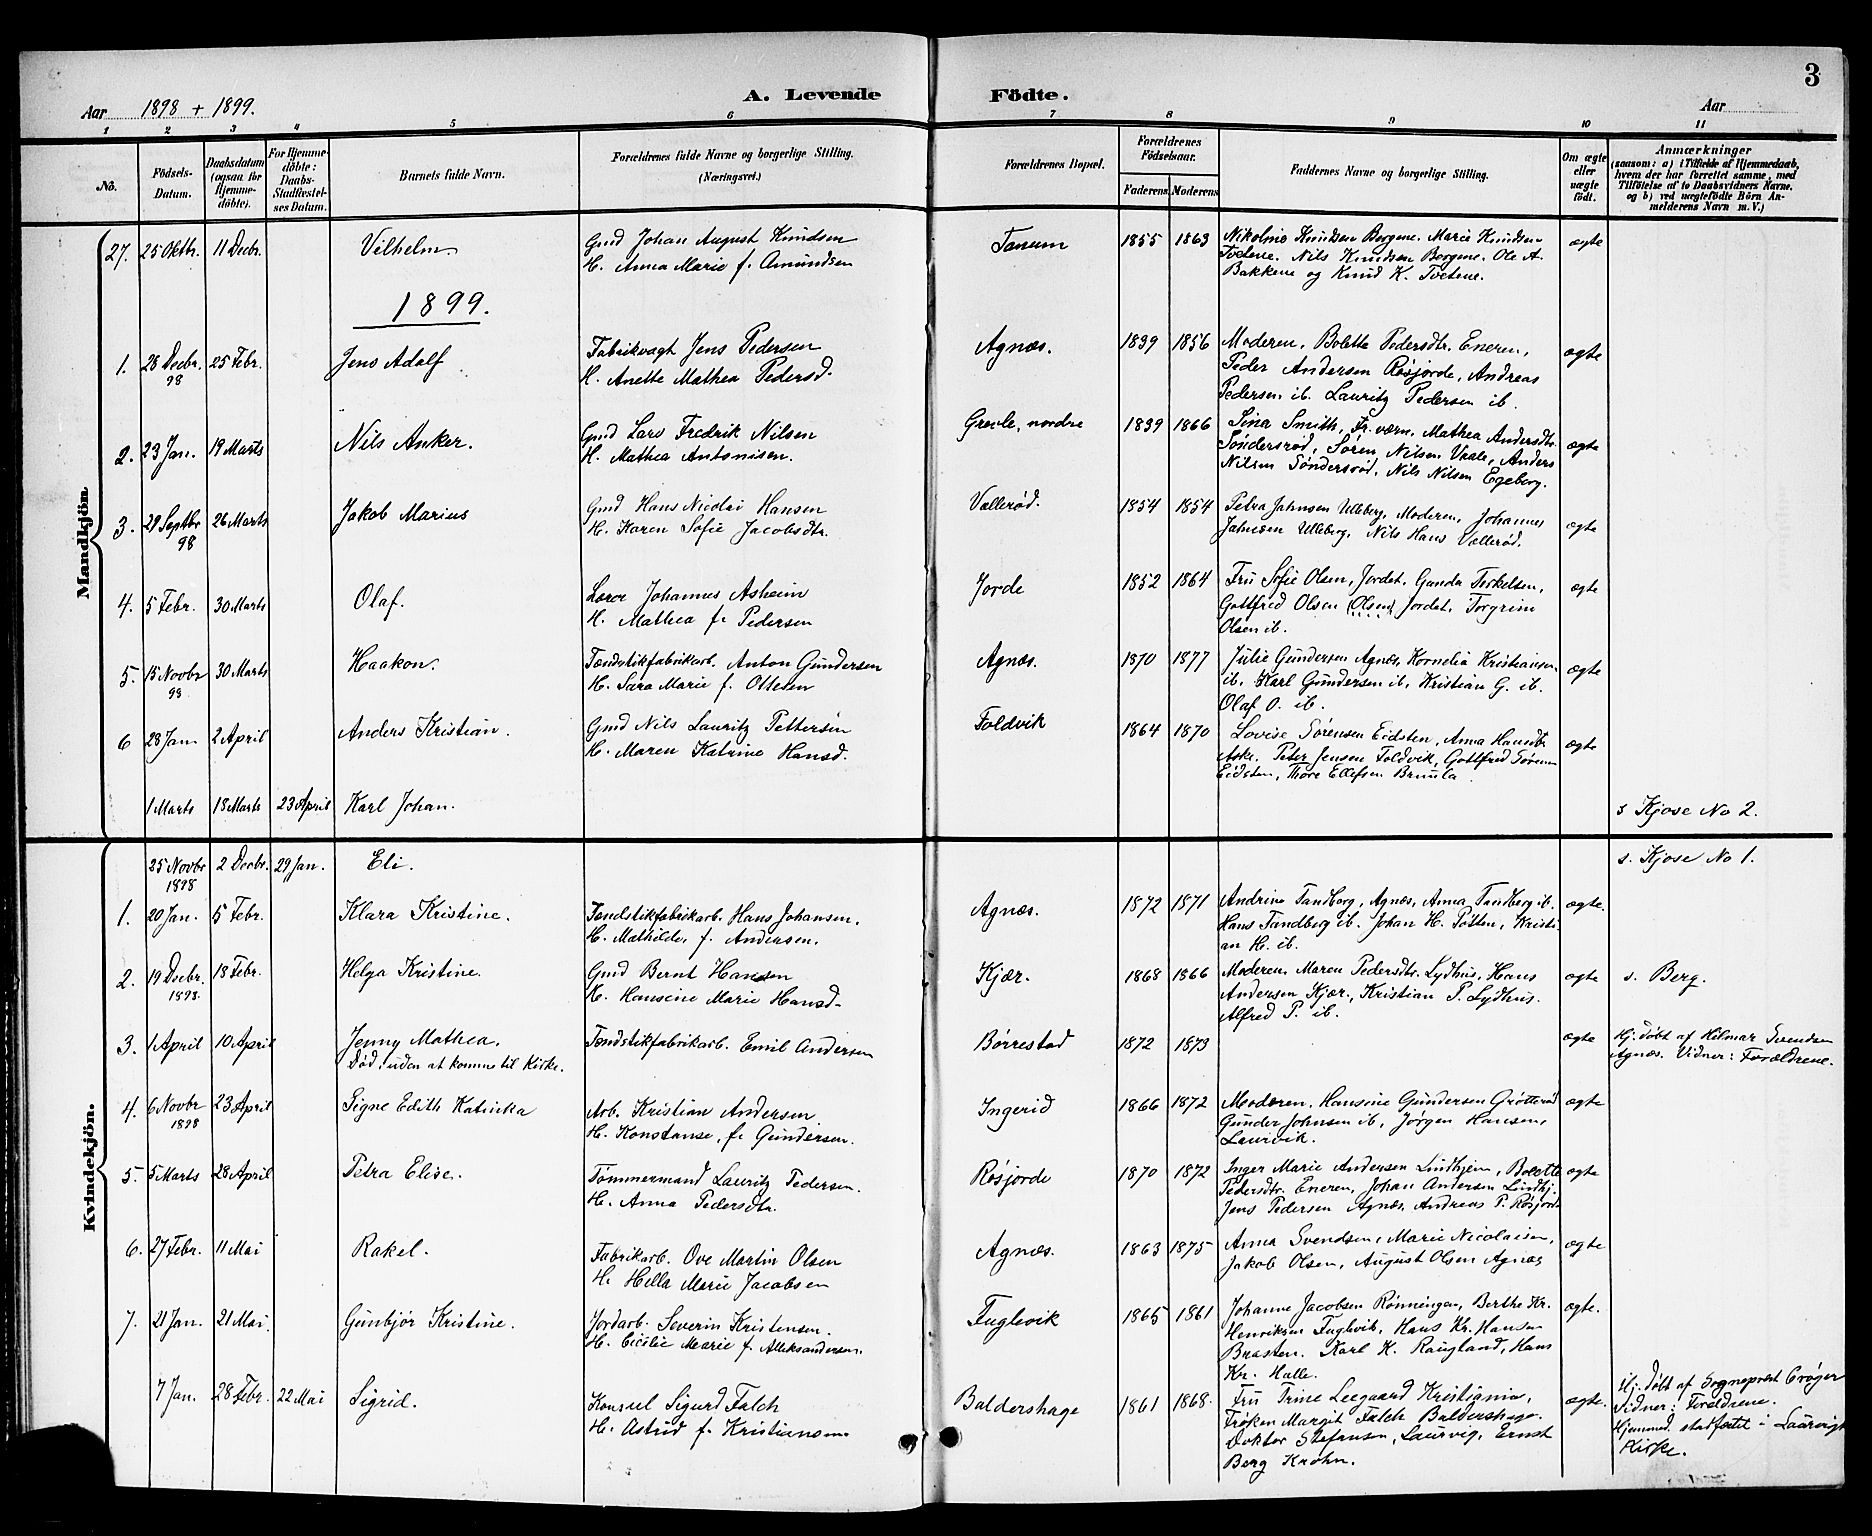 3
Aar 1898 + 1899.
A. Levende Födte.
Aar
1 2 3 4 5 6 7 8 9 10 11
No.
Födsels-Datum.
Daabsdatum (ogsaa for Hjemme-döbte).
For Hjemme-döbte: Daabs-Stadfæstel-ses Datum.
Barnets fulde Navn.
Forældrenes fulde Navne og borgerlige Stilling. (Næringsvei.)
Forældrenes Bopæl.
Forældrenes Födselsaar.
Faderens Moderens
Faddernes Navne og borgerlige Stilling.
Om ægte eller uægte födt.
Anmærkninger
(saasom: a) i Tilfælde af Hjemmedaab, hvem der har forrettet samme, med Tilföielse af to Daabsvidners Navne, og b) ved uægtefödte Börn An-melderens Navn m. V.)
Mandkjön
27. 25 Oktbr. 11 Decbr. Vilhelm. Gmd Johan August Knudsen Tanum 1855 1863 Nikoline Knudsen Bergene. Marie Knudsen ægte
H. Anna Marie f. Amundsen Tvetene. Nils Knudsen Bergene. Ole A.
Bakkene og Knud K. Tvetene.
1899.
1. 26 Decbr. 98 25 Febr. Jens Adolf Fabrikvagt Jens Pedersen Agnæs. 1839 1856 Moderen, Bolette Pedersdtr. Eneren, ægte
H. Anette Mathea Pedersd. Peder Andersen Røsjorde, Andreas
Pedersen ib. Lauritz Pedersen ib.
2. 23 Jan. 19 Marts Nils Anker. Gmd Lars Fredrik Nilsen Grevle, nordre 1839 1866 Lina Smith, Fr.værn. Mathea Andersdtr. ægte
H. Mathea Antonisen. Søndersrød, Søren Nilsen Vaale, Anders
Nilsen Søndersrød, Nils Nilsen Egeberg.
3. 29 Septbr 98 26 Marts Jakob Marius Gmd Hans Nicolai Hansen Vallerød. 1854 1854 Petra Jahnsen Ulleberg, Moderen, Johannes ægte
H. Karen Sofie Jacobsdtr. Jahnsen Ulleberg, Nils Hans Vallerød.
4. 5 Febr. 30 Marts Olaf. Lærer Johannes Asheim Jorde 1852 1864 Fru Sofie Olsen, Jordet. Gunda Terkelsen, ægte
H. Mathea f. Pedersen Gottfred Olsen (Olsen) Jordet, Torgrim
Olsen ib.
5. 15 Novbr 98 30 Marts Haakon. Tændstikfabrikarb. Anton Gundersen Agnæs. 1870 1877 Julie Gundersen Agnæs, Kornelia Kristiansen ægte
H. Sara Marie f. Ottesen ib. Karl Gundersen ib, Kristian G. ib.
Olaf O. ib.
6 28 Jan 2 April Anders Kristian. Gmd Nils Lauritz Pettersen Foldvik 1864 1870 Lovise Sørensen Eidsten, Anna Hansdtr. ægte
H. Maren Katrine Hansd. Aske. Peter Jensen Foldvik, Gottfred Sørensen
Eidsten, Thore Ellefsen Brunla.
1 Marts 18 Marts 23 April Karl Johan. s Kjose No 2.
Kvindekjön.
25 Novbr 1898 2 Decbr. 29 Jan. Eli. s. Kjose No 1.
1. 20 Jan. 5 Febr. Klara Kristine. Tændstikfabrikarb. Hans Johansen. Agnæs. 1872 1871 Andrine Tandberg, Agnæs, Anna Tandberg ib. ægte.
H. Mathilde, f. Andersen. Hans Tandberg ib. Johan H. Totten, Kristi-
an H. ib.
2. 19 Decbr. 1898. 18 Febr. Helga Kristine. Gmd Bernt Hansen Kjær. 1868 1866 Moderen. Maren Pedersdtr. Lydhus, Hans ægte s. Berg.
H. Hansine Marie Hansd. Andersen Kjær., Kristian P. Lydhus.
Alfred P. ib.
3. 1 April 10 April Jenny Mathea. Tændstikfabrikarb. Emil Andersen Børrestad 1872 1873 ægte Hj.døbt af Hilmar Svendsen
Død uden at komme til Kirke. Agnæs. Vidner: Forældrene.
4. 6 Novbr 1898 23 April Signe Edith Katinka Arb. Kristian Andersen Ingerid 1866 1872 Moderen, Hansine Gundersen Grøtterød ægte
H. Konstanse, f. Gundersen. Gunder Johnsen ib, Jørgen Hansen,
Laurvik.
5. 5 Marts 28 April Petra Elise. Tømmermand Lauritz Pedersen. Røsjorde 1870 1872 Inger Marie Andersen Lindhjem, Bolette ægte
H. Anna Pedersdtr. Pedersdtr. Eneren, Johan Andersen Lindhj.
Jens Pedersen Agnæs, Andreas P. Røsjorde
6. 27 Febr. 11 Mai Rakel. Fabrikarb. Ove Martin Olsen Agnæs. 1863 1875 Anna Svendsen, Marie Nicolaisen, ægte
H. Hella Marie Jacobsen Jakob Olsen, August Olsen Agnæs
7. 21 Jan. 21 Mai. Gunbjør Kristine. Jordarb. Severin Kristensen. Fuglevik 1865 1861 Johanne Jacobsen Rønningen, Berthe Kr. ægte.
H. Cicilie Marie f. Alleksandersen. Henriksen Fuglevik, Hans Kr. Hansen
Brasten. Karl H. Raugland, Hans
Kr. Halle.
7 Jan. 28 Febr. 22 Mai Sigrid. Konsul Sigurd Falch Baldershage 1861 1868. Fru Trine Leegaard Kristiania, ægte. Hj.døbt af Sogneprest Crøger
H. Astrid f. Kristiansen Frøken Margit Falch Baldershage. Vidner: Forældrene.
Doktor Stefansen, Laurvig, Ernst Hjemmed. stadfæstet i Laurvigs
Berg Krohn. Kirke.